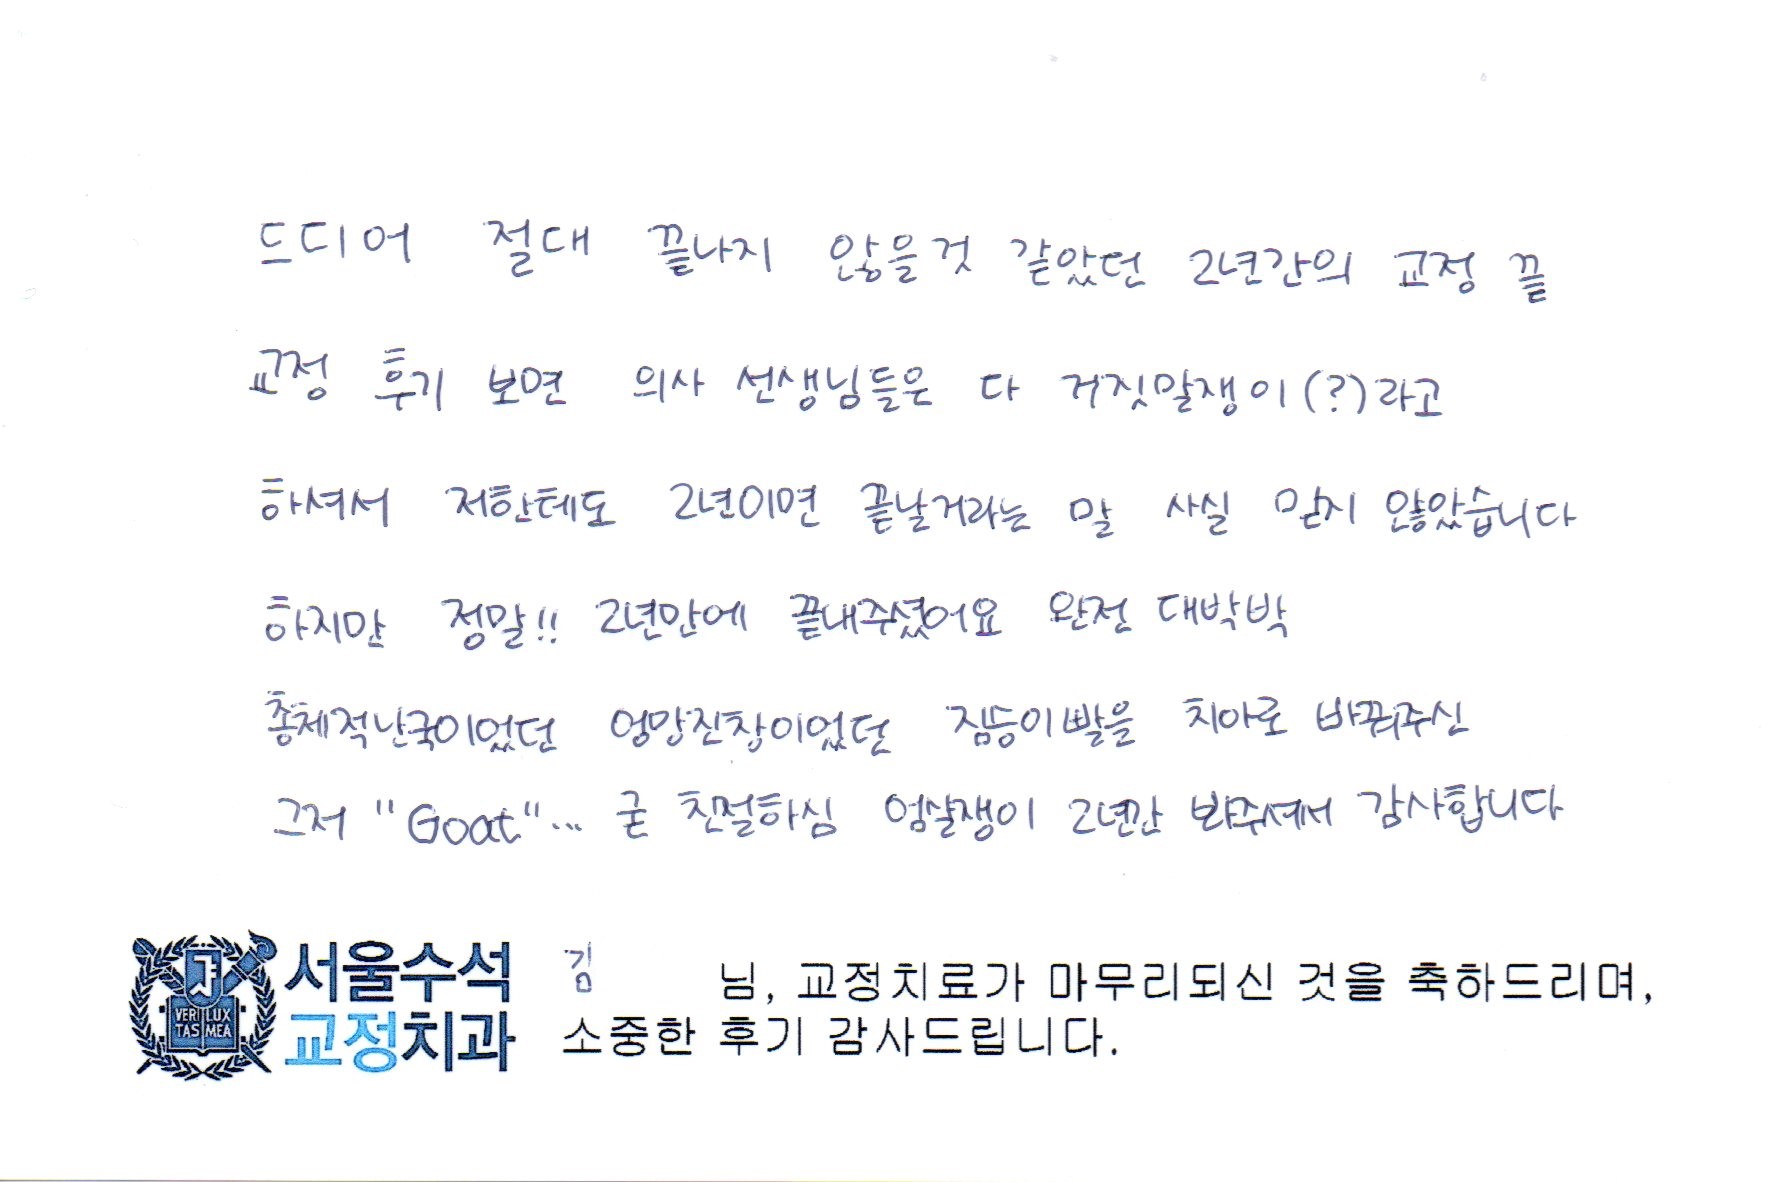 드디어 절대 끝나지 않을것 같았던 2년간의 교정 끝
교정 후기 보면 의사 선생님들은 다 거짓말쟁이(?)라고
하셔서 저한테도 2년이면 끝날거라는 말 사실 믿지 않았습니다
하지만 정말!! 2년만에 끝내주셨어요 완전 대박박
총체적난국이었던 엉망진창이었던 짐승이빨을 치아로 바꿔주신
그저 "Goat"... 굳 친절하심 엄살쟁이 2년간 봐주셔서 감사합니다
VERI LUX
TAS MEA
서울수석
교정치과
김 님, 교정치료가 마무리되신 것을 축하드리며,
소중한 후기 감사드립니다.